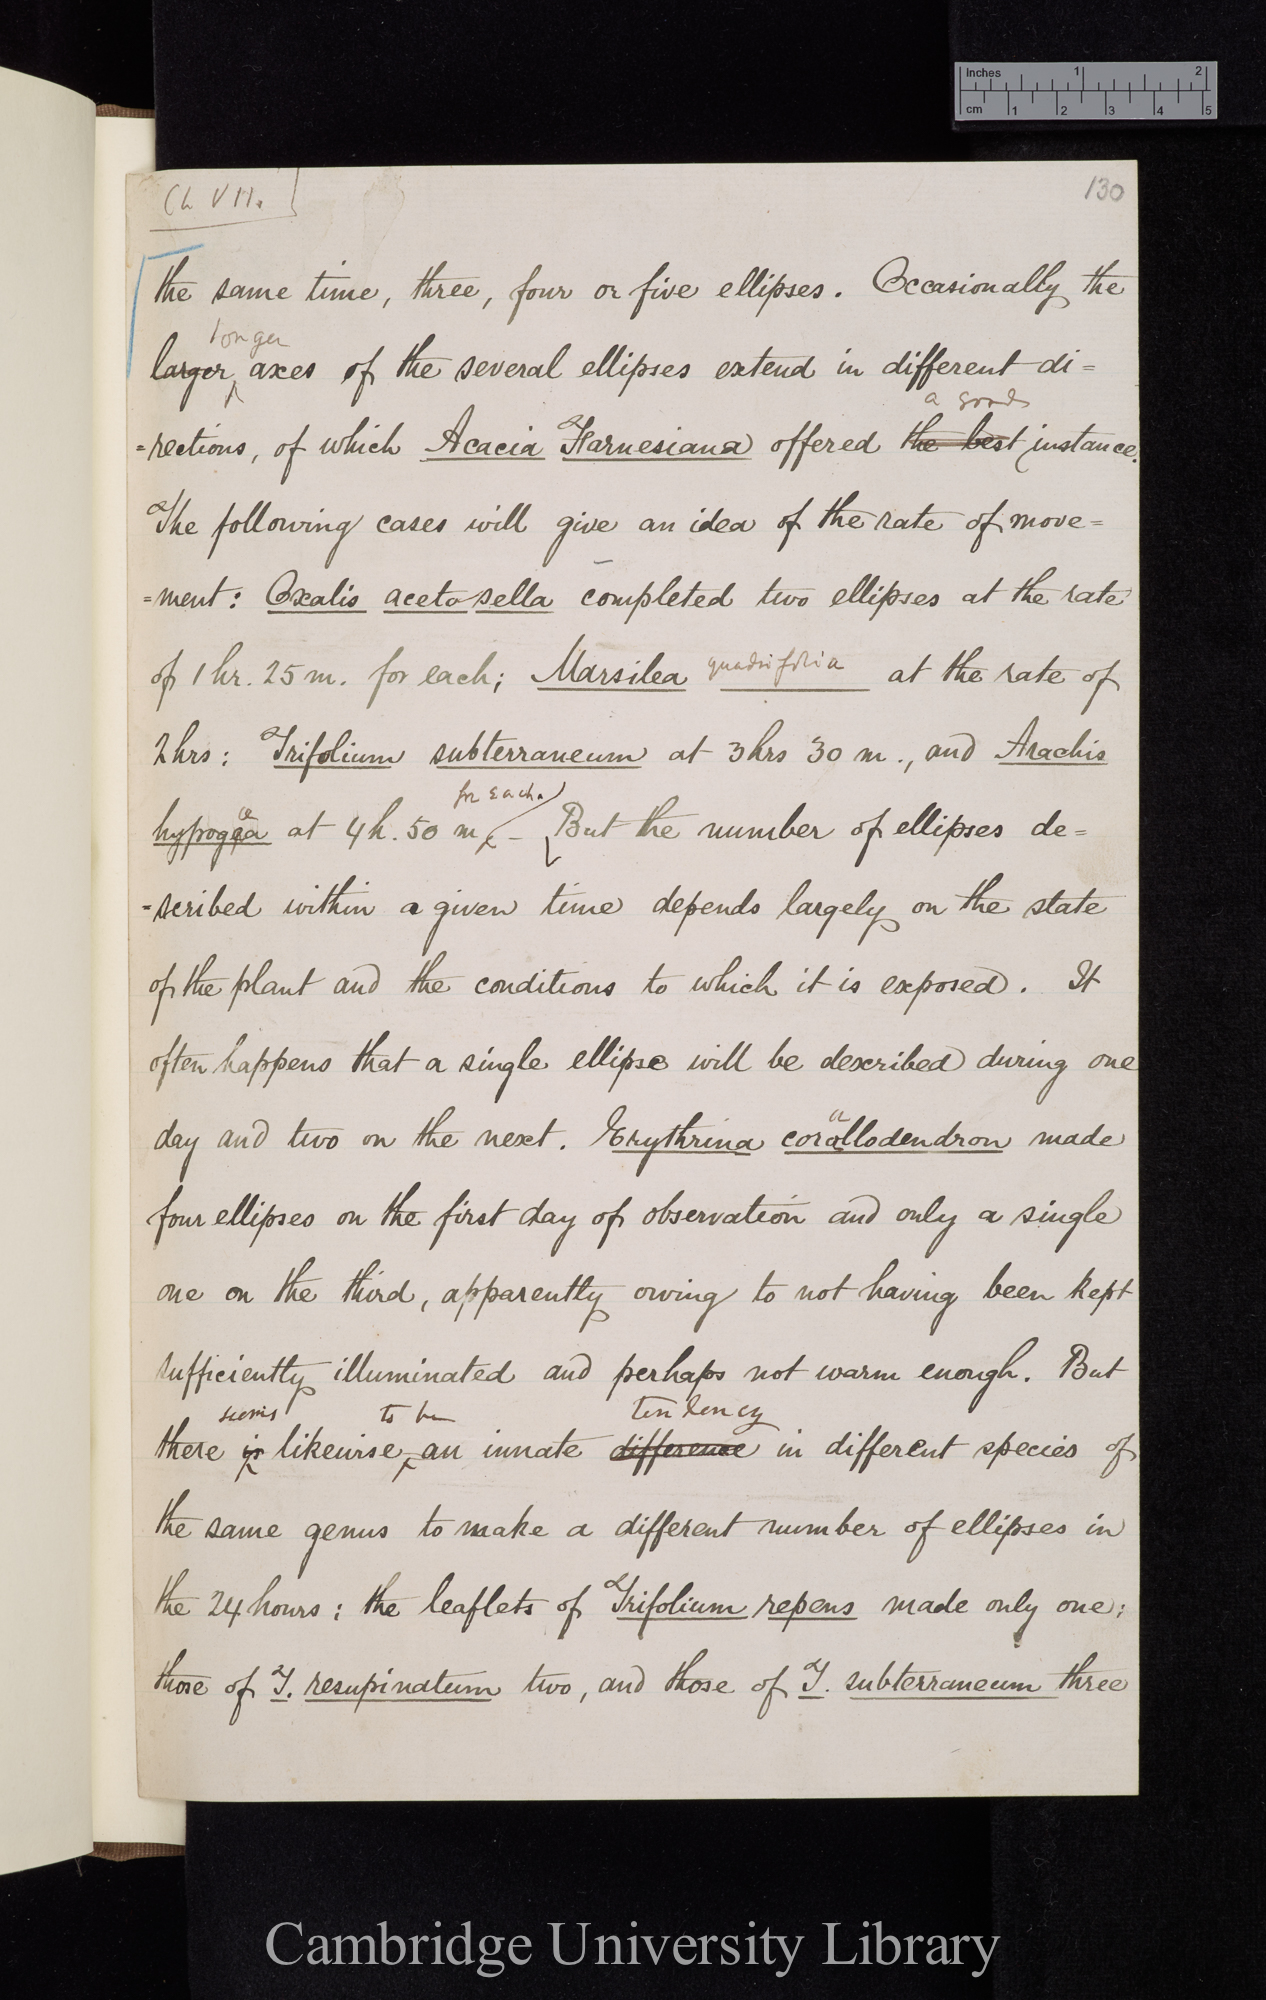 Inches 1 2
cm 1 2 3 4 5
Ch VII.
130
the same time, three, four or five ellipses. Occasionally the
longer
larger axes of the several ellipses extend in different di=
a good
=rections, of which Acacia Farnesiana offered the best instance.
The following cases will give an idea of the rate of move=
=ment: Oxalis acetosella completed two ellipses at the rate
of 1 hr. 25 m. for each; Marsilea quadrifolia at the rate of
2 hrs: Trifolium subterraneum at 3 hrs 30 m., and Arachis
for each.
hypogæa at 4 h. 50 m. - But the number of ellipses de=
-scribed within a given time depends largely on the state
of the plant and the conditions to which it is exposed. It
often happens that a single ellipse will be described during one
day and two on the next. Erythrina corallodendron made
four ellipses on the first day of observation and only a single
one on the third, apparently owing to not having been kept
sufficiently illuminated and perhaps not warm enough. But
seems to be tendency
there is likewise an innate difference in different species of
the same genus to make a different number of ellipses in
the 24 hours: the leaflets of Trifolium repens made only one;
those of T. resupinatum two, and those of T. subterraneum three
Cambridge University Library